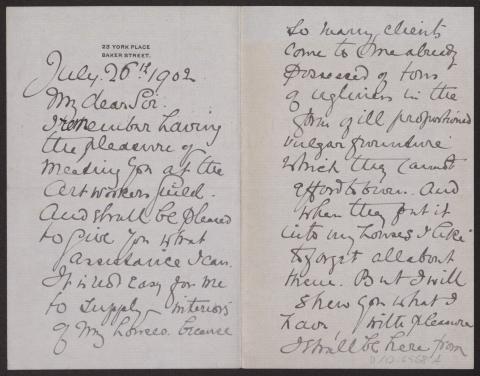 23 YORK PLACE
BAKER STREET.
July. 26th 1902
My dear Sir.
I remember having
the pleasure of
meeting you at the
Art workers guild.
And shall be pleased
to give you what
assistance I can.
It is not Easy for me
to supply interiors
of my houses. because
So many clients
come to me already
possessed of tons
of ugliness in the
form of ill proportioned
vulgar furniture
which they cannot
afford to burn. And
when they put it
into my houses I like
to forget all about
them. But I will
shew you what I
have, with pleasure
I shall be here from